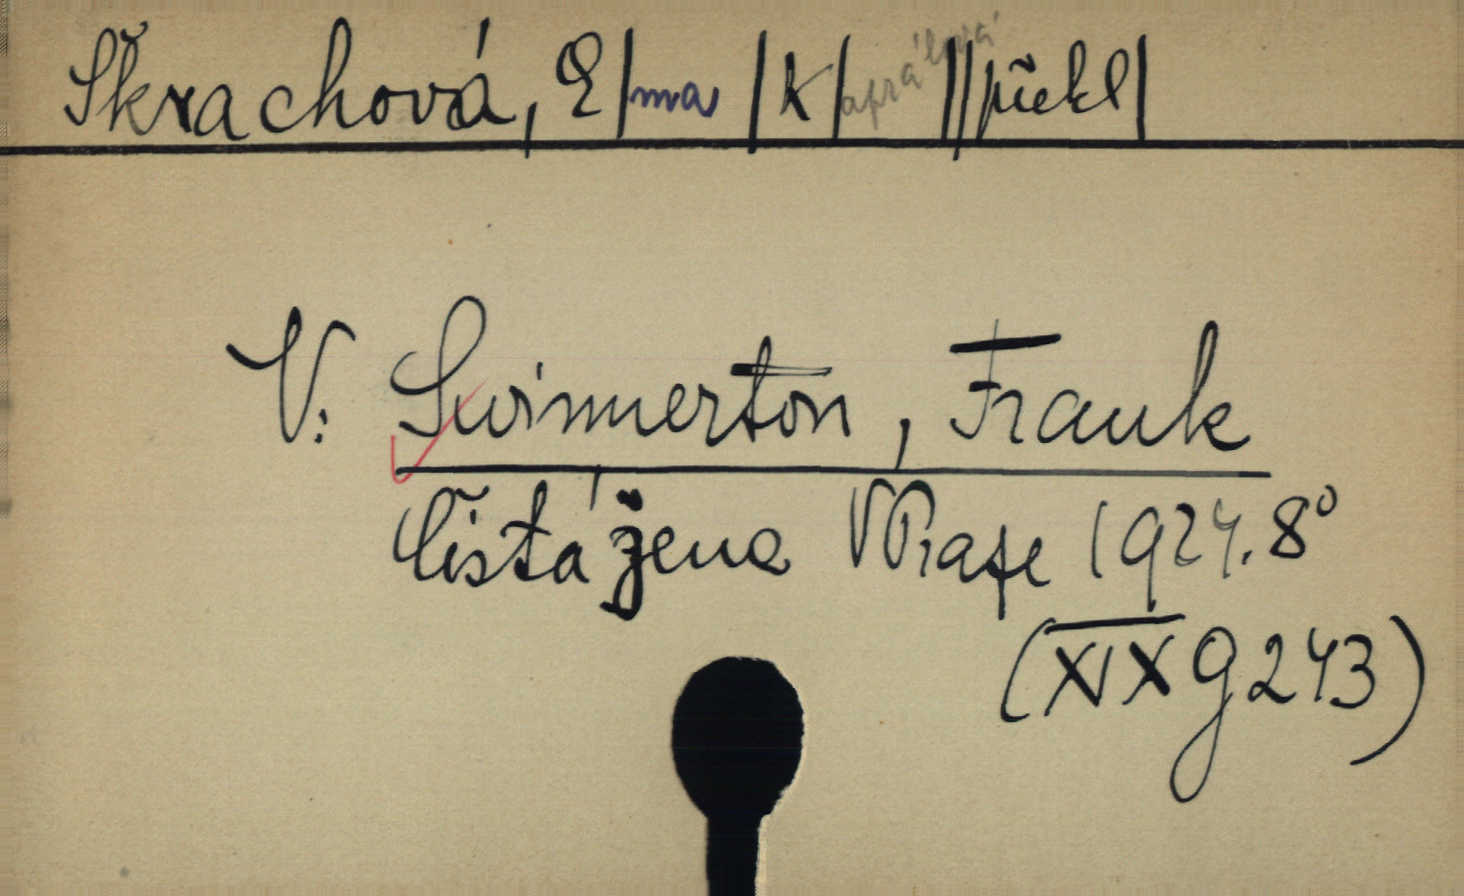 Škrachová, E|ma |K|aprálová||překl|
V: Swinnerton, Frank
Čistá žena V Praze 1924. 8°
(XIX G 243)